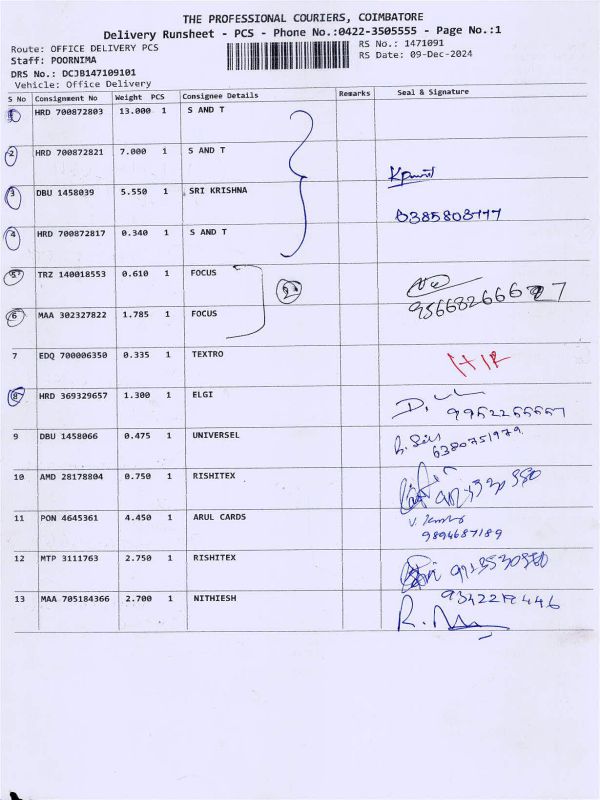 THE PROFESSIONAL COURIERS, COIMBATORE
Delivery Runsheet - PCS - Phone No.:0422-3505555 - Page No.:1
Route: OFFICE DELIVERY PCS
RS No.: 1471091
Staff: POORNIMA
RS Date: 09-Dec-2024
DRS No.: DCJB147109101
Vehicle: Office Delivery
S No Consignment No Weight PCS Consignee Details Remarks Seal & Signature
1 HRD 700872803 13.000 1 S AND T
2 HRD 700872821 7.000 1 S AND T
3 DBU 1458039 5.550 1 SRI KRISHNA
4 HRD 700872817 0.340 1 S AND T
5 TRZ 140018553 0.610 1 FOCUS
2
6 MAA 302327822 1.785 1 FOCUS
7 EDQ 700006350 0.335 1 TEXTRO
8 HRD 369329657 1.300 1 ELGI
9 DBU 1458066 0.475 1 UNIVERSEL
6380751979
10 AMD 28178804 0.750 1 RISHITEX
11 PON 4645361 4.450 1 ARUL CARDS
9894687189
12 MTP 3111763 2.750 1 RISHITEX
13 MAA 705184366 2.700 1 NITHIESH